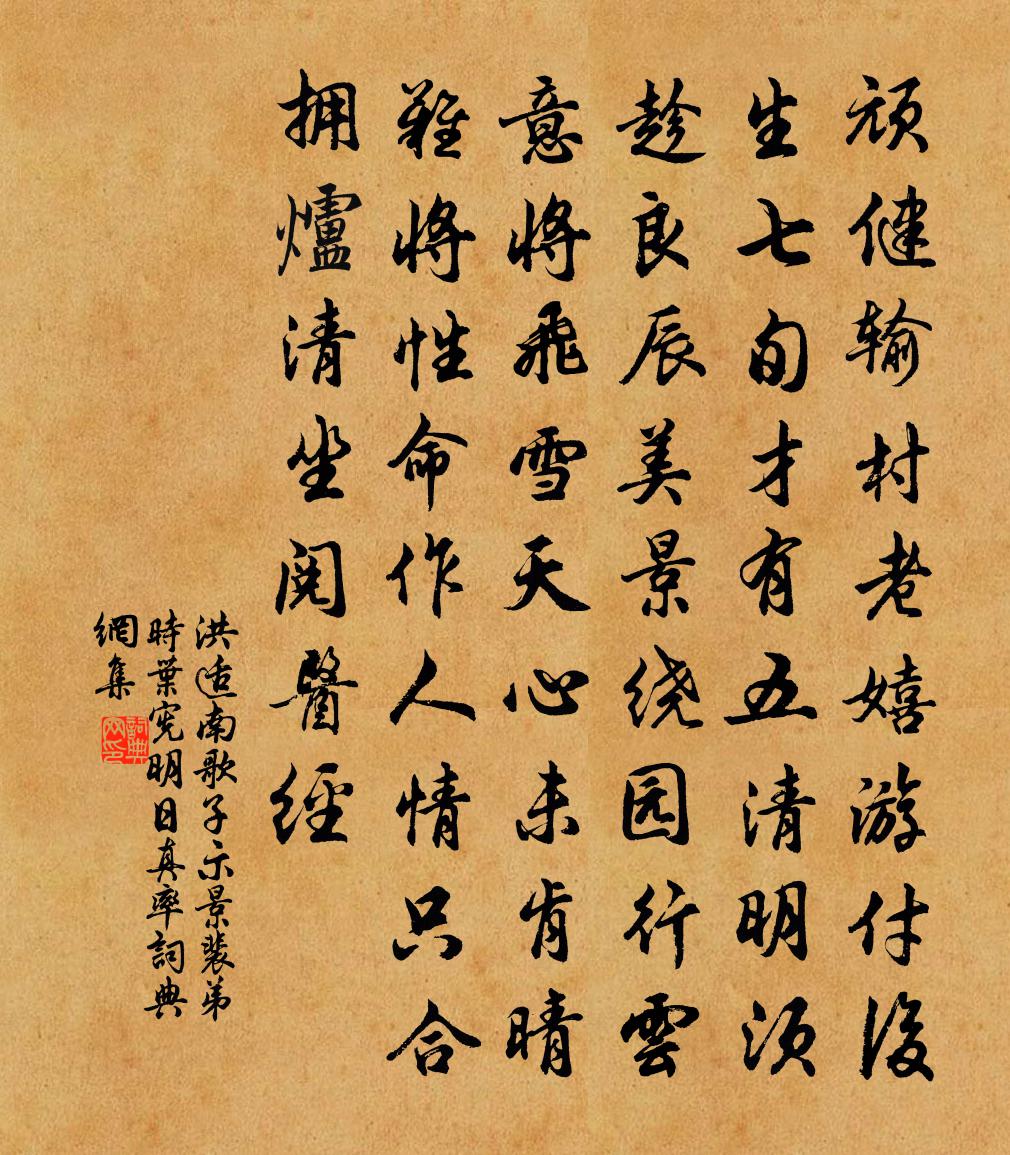 顽健输村老嬉游付後
生七旬才有五清明须
趁良辰美景绕园行雲
意将飛雪天心未肯晴
難将性命作人情只合
拥爐清坐閱醫經
洪适南歌子示景裴弟
時葉宪明日真率詞典
網集
詞典网印